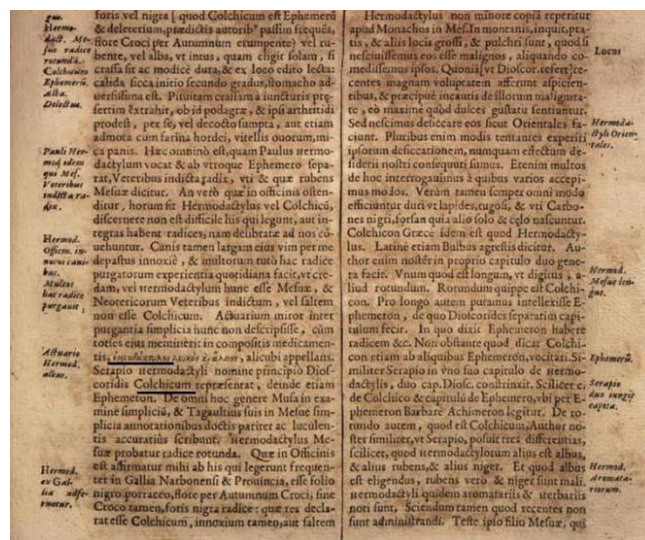 foris vel nigra [ quod Colchicum est Ephemerū
& deleterium, prædictis autorib⁹ passim frequēs,
flore Croci per Autumnum erumpente) vel ru-
bente, vel alba, vt intus, quam eligit solam, si
crassa sit ac modice dura, & ex loco edito lecta:
calida sicca initio secundo gradus, stomacho ad
uersissima est. Pituitam crassam à iuncturis præ-
sertim extrahit, ob id podagræ, & ipsi arthritidi
prodest, per se, vel decocto sumpta, aut etiam
admota cum farina hordei, vitellis ouorum, mi-
ca panis. Hæc omninò est, quam Paulus Hermo-
dactylum vocat & ab vtroque Ephemero sepa-
rat, Veteribus indicta radix, vti & quæ rubens
Mesuæ dicitur. An verò quæ in officinis osten-
ditur, horum sit Hermodactylus vel Colchicū,
discernere non est difficile his qui legunt, aut in-
tegras habent radices, nam delibratæ ad nos cō-
uehuntur. Canis tamen largam eius vim per me
depastus innoxiè, & multorum tutò hac radice
purgatorum experientia quotidiana facit, vt cre-
dam, vel Hermodactylum hunc esse Mesuæ, &
Neotericorum Veteribus indictum, vel saltem
non esse Colchicum. Actuarium miror inter
purgantia simplicia hunc non descripsisse, cùm
toties eius meminerit in compositis medicamen-
tis, alicubi appellans.
Serapio Hermodactyli nomine principio Dios-
coridis Colchicum repræsentat, deinde etiam
Ephemeron. De omni hoc genere Musa in exa-
mine simpliciū, & Tagaultius suis in Mesue sim-
plicia annotationibus doctis pariter ac luculen-
tis accuratiùs scribunt. Hermodactylus Me-
suæ probatur radice rotunda. Quæ in Officinis
est affirmatur mihi ab his qui legerunt frequen-
ter in Gallia Narbonensi & Prouincia, esse folio
nigro porraceo, flore per Autumnum Croci, sine
Croco tamen, foris nigra radice: quæ res decla-
rat esse Colchicum, innoxium tamen, aut saltem
Hermo-
dact. Me-
suæ radice
rotunda.
Colchicum
Ephemerū.
Alba.
Delectus.
Pauli Her-
mod. idem
qui Mes.
Veteribus
indicta ra-
dix.
Hermod.
Officin. in-
nocuus cani-
bus.
Multos
hac radice
purgauit.
Actuario
Hermod.
albus.
Hermod.
ex Gal-
lia adfe-
runtur.
Hermodactylus non minore copia reperitur
apud Monachos in Mes. In montanis, inquit, pra-
tis, & aliis locis grossi, & pulchri sunt, quod si
nesciuissemus eos esse malignos, aliquando co-
medissemus ipsos. Quoniā, vt Dioscor. refert, re-
centes magnam voluptatem afferunt aspicien-
tibus, & præcipuè incautis de illorum malignita-
te, eò maxime quòd dulces gustatu sentiuntur.
Sed nescimus desiccare eos sicut Orientales fa-
ciunt. Pluribus enim modis tentantes experiri
ipsorum desiccationem, numquam effectum de-
siderii nostri consequuti sumus. Etenim multos
de hoc interrogauimus à quibus varios accepi-
mus modos. Verùm tamen semper omni modo
efficiuntur duri vt lapides, rugosi, & vti Carbo-
nes nigri, forsan quia alio solo & cęlo nascuntur.
Colchicon Græcè idem est quod Hermodacty-
lus. Latinè etiam Bulbus agrestis dicitur. Au-
thor enim noster in proprio capitulo duo gene-
ra facit. Vnum quod est longum, vt digitus, a-
liud rotundum. Rotundum quippe est Colchi-
con. Pro longo autem putamus intellexisse E-
phemeron, de quo Dioscorides separatim capi-
tulum fecit. In quo dixit Ephemeron habere
radicem &c. Non obstante quod dicat Colchi-
con etiam ab aliquibus Ephemeron, vocitari. Si-
militer Serapio in vno suo capitulo de Hermo-
dactylis, duo cap. Diosc. constrinxit. Scilicet c.
de Colchico & capitulū de Ephemero, vbi per E-
phemeron Barbarè Achimeron legitur. De ro-
tundo autem, quod est Colchicum, Author no-
ster similiter, vt Serapio, posuit tres differentias,
scilicet, quod Hermodactylorum alius est albus,
& alius rubens, & alius niger. Et quod albus
est eligendus, rubens verò & niger sunt mali.
Hermodactyli quidem aromatariis & Herbariis
noti sunt. Sciendum tamen quod recentes non
sunt administrandi. Teste ipso filio Mesuæ, qui
Locus
Hermoda-
ctyli Orien-
tales.
Hermod.
Mesuæ lon-
gus.
Ephemerū.
Serapio
duo iungit
capita.
Hermod.
Aromata-
riorum.